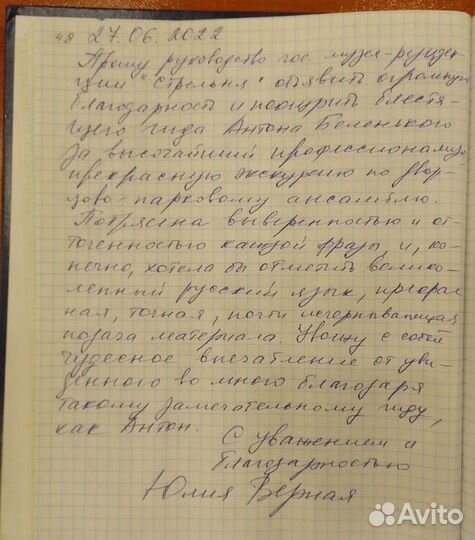 48 27.06.2022
Прошу руководство гос. музея-резиден-
ции "Стрельня" объявить огромную
благодарность и поощрить блестя-
щего гида Антона Беленького
за высочайший профессионализм
прекрасную экскурсию по двор-
цово-парковому ансамблю.
Потрясена выверенностью и от-
точенностью каждой фразы и, ко-
нечно, хотела бы отметить велико-
лепный русский язык, прекрас-
ная, точная, почти исчерпывающая
подача материала. Увожу с собой
чудесное впечатление от уви-
денного во много благодаря
такому замечательному гиду,
как Антон.
С уважением и
благодарностью
Юлия Верная
Avito